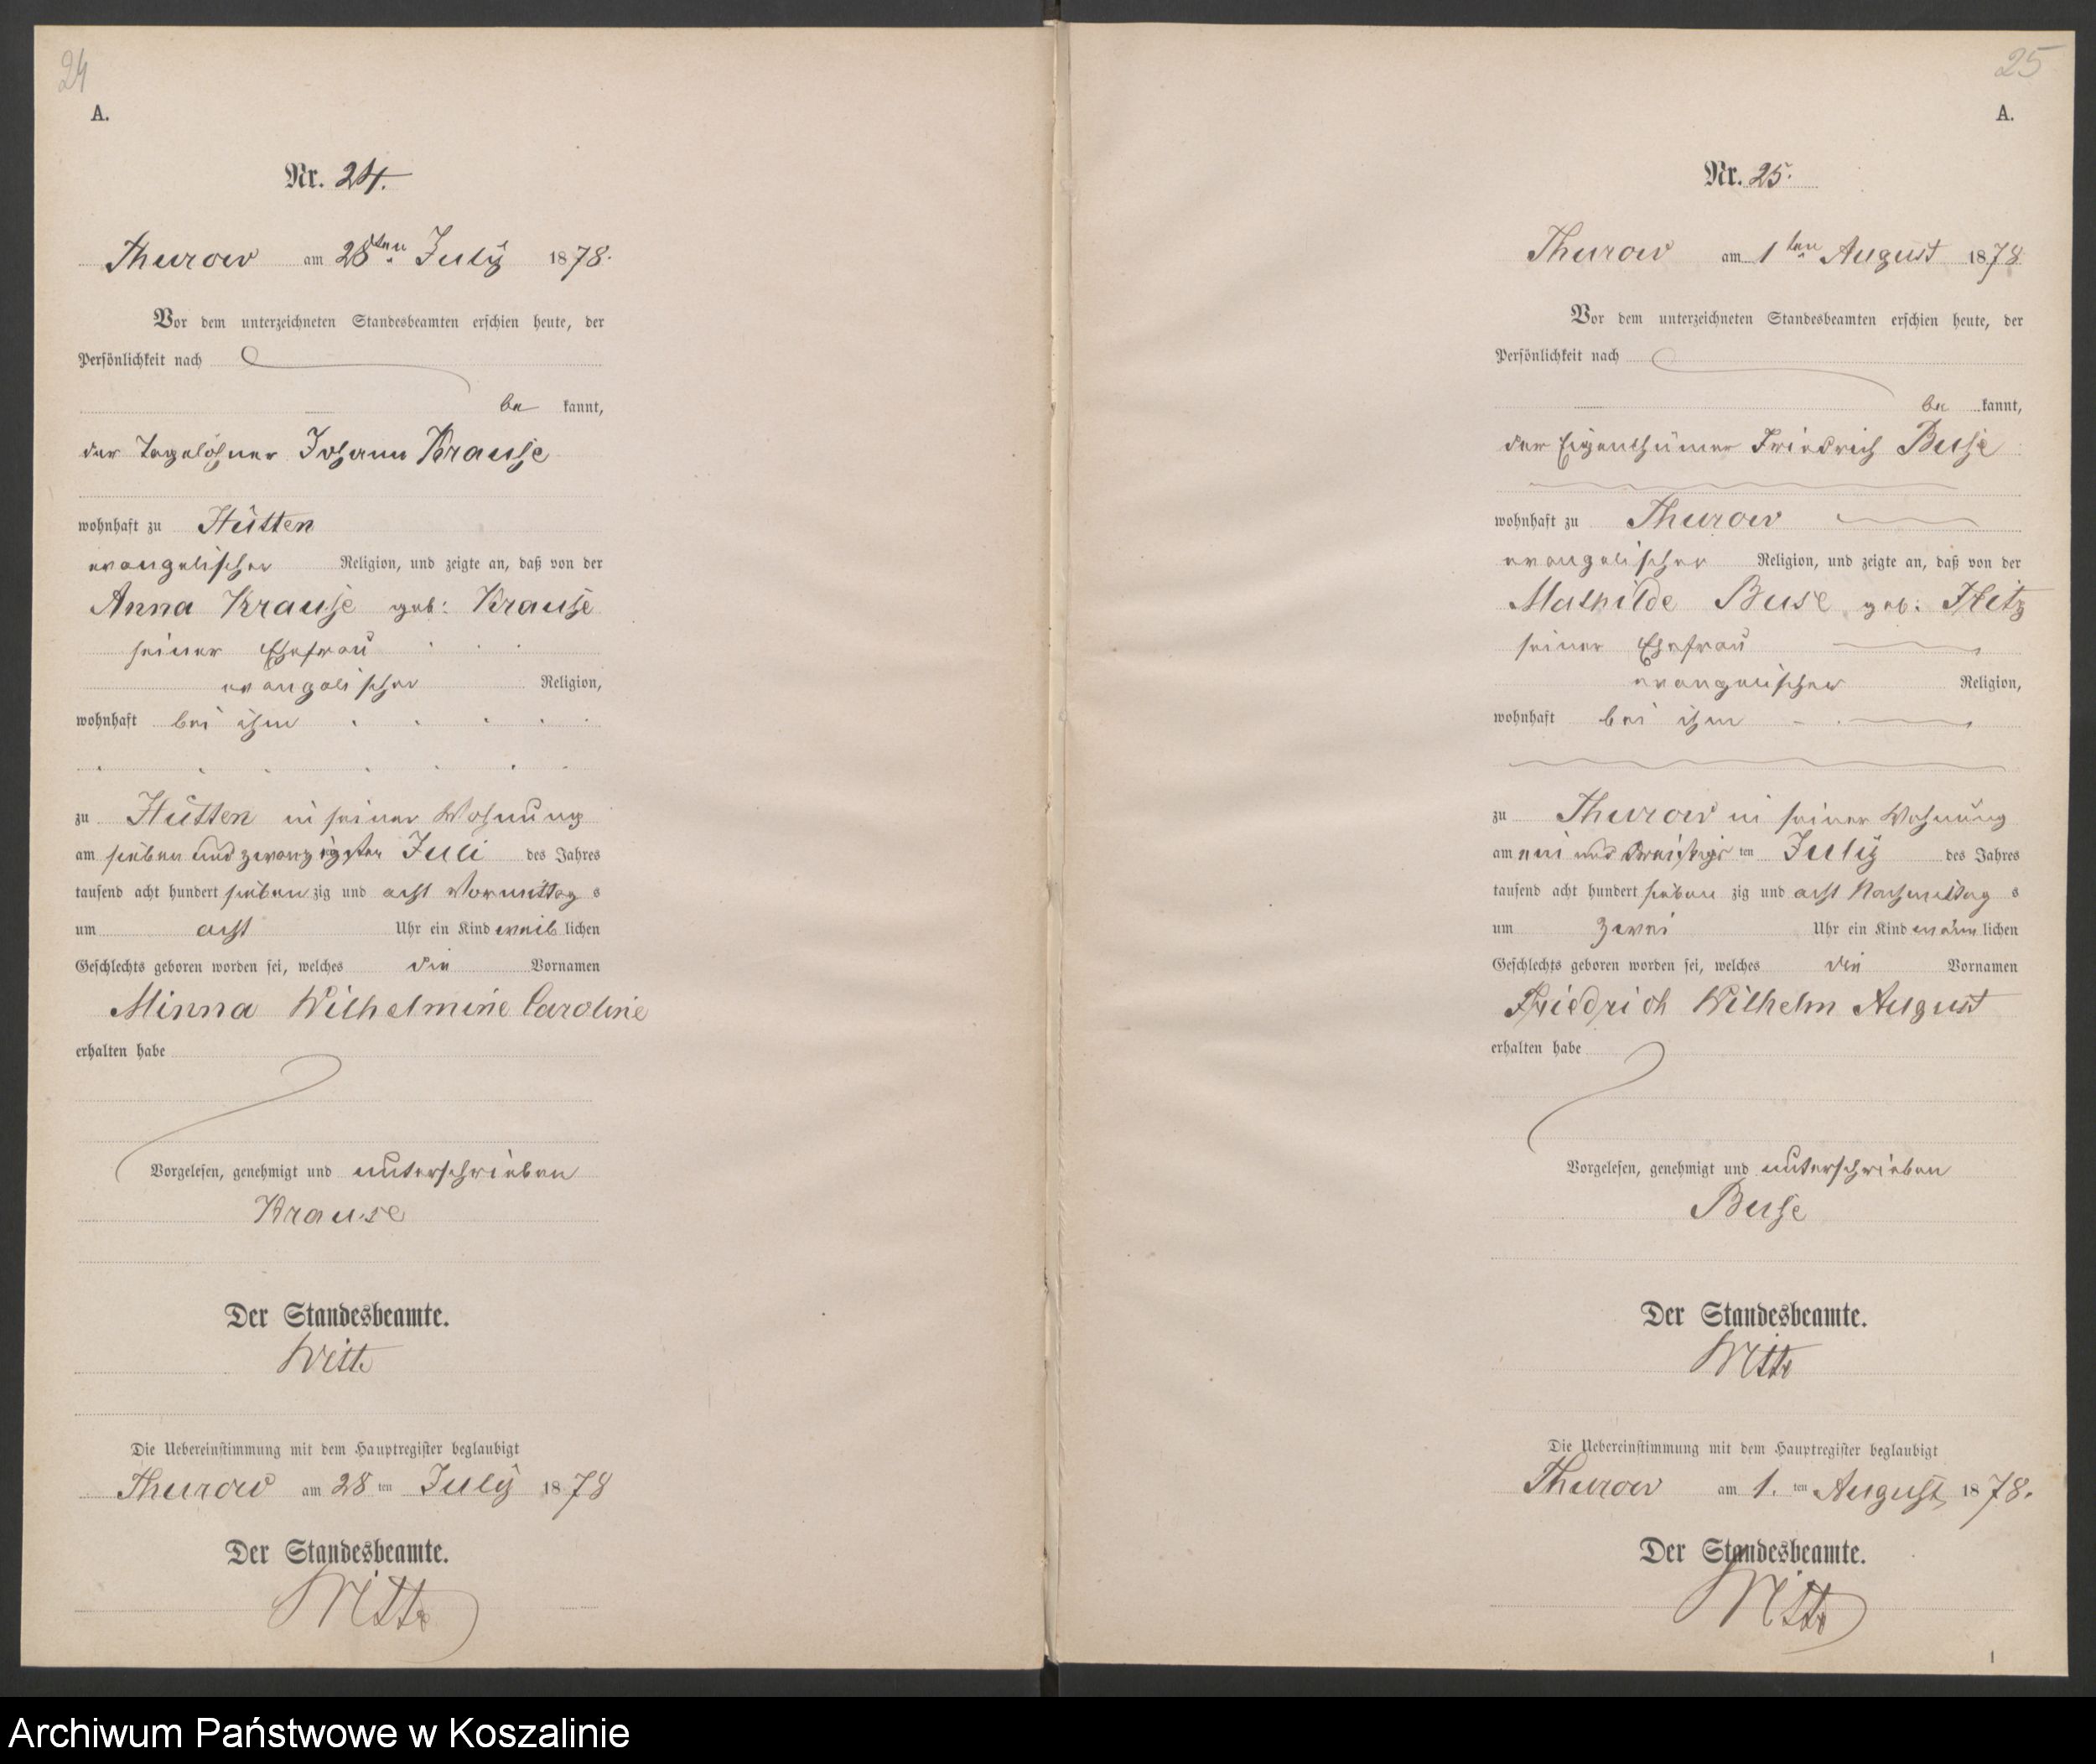 24
A.
Nr. 24.
Thurow am 28ten July 1878.
Vor dem unterzeichneten Standesbeamten erschien heute, der
Persönlichkeit nach
be kannt,
der Tagelöhner Johann Krause
wohnhaft zu Hütten
evangelischer Religion, und zeigte an, daß von der
Anna Krause geb: Krause
seiner Ehefrau
evangelischer Religion,
wohnhaft bei ihm
zu Hütten in seiner Wohnung
am sieben und zwanzigsten Juli des Jahres
tausend acht hundert sieben zig und acht Vormittag s
um acht Uhr ein Kind weib lichen
Geschlechts geboren worden sei, welches die Vornamen
Minna Wilhelmine Caroline
erhalten habe
Vorgelesen, genehmigt und unterschrieben
Krause
Der Standesbeamte.
Witte
Die Uebereinstimmung mit dem Hauptregister beglaubigt
Thurow am 28 ten July 1878
Der Standesbeamte.
Witte
25
A.
Nr. 25.
Thurow am 1ten August 1878
Vor dem unterzeichneten Standesbeamten erschien heute, der
Persönlichkeit nach
be kannt,
der Eigenthümer Friedrich Buse
wohnhaft zu Thurow
evangelischer Religion, und zeigte an, daß von der
Mathilde Buse geb:
seiner Ehefrau
evangelischer Religion,
wohnhaft bei ihm
zu Thurow in seiner Wohnung
am ein und dreißigs ten July des Jahres
tausend acht hundert sieben zig und acht Nachmittag s
um zwei Uhr ein Kind männ lichen
Geschlechts geboren worden sei, welches die Vornamen
Friedrich Wilhelm August
erhalten habe
Vorgelesen, genehmigt und unterschrieben
Buse
Der Standesbeamte.
Witte
Die Uebereinstimmung mit dem Hauptregister beglaubigt
Thurow am 1. ten August 1878.
Der Standesbeamte.
Witte
1
Archiwum Państwowe w Koszalinie